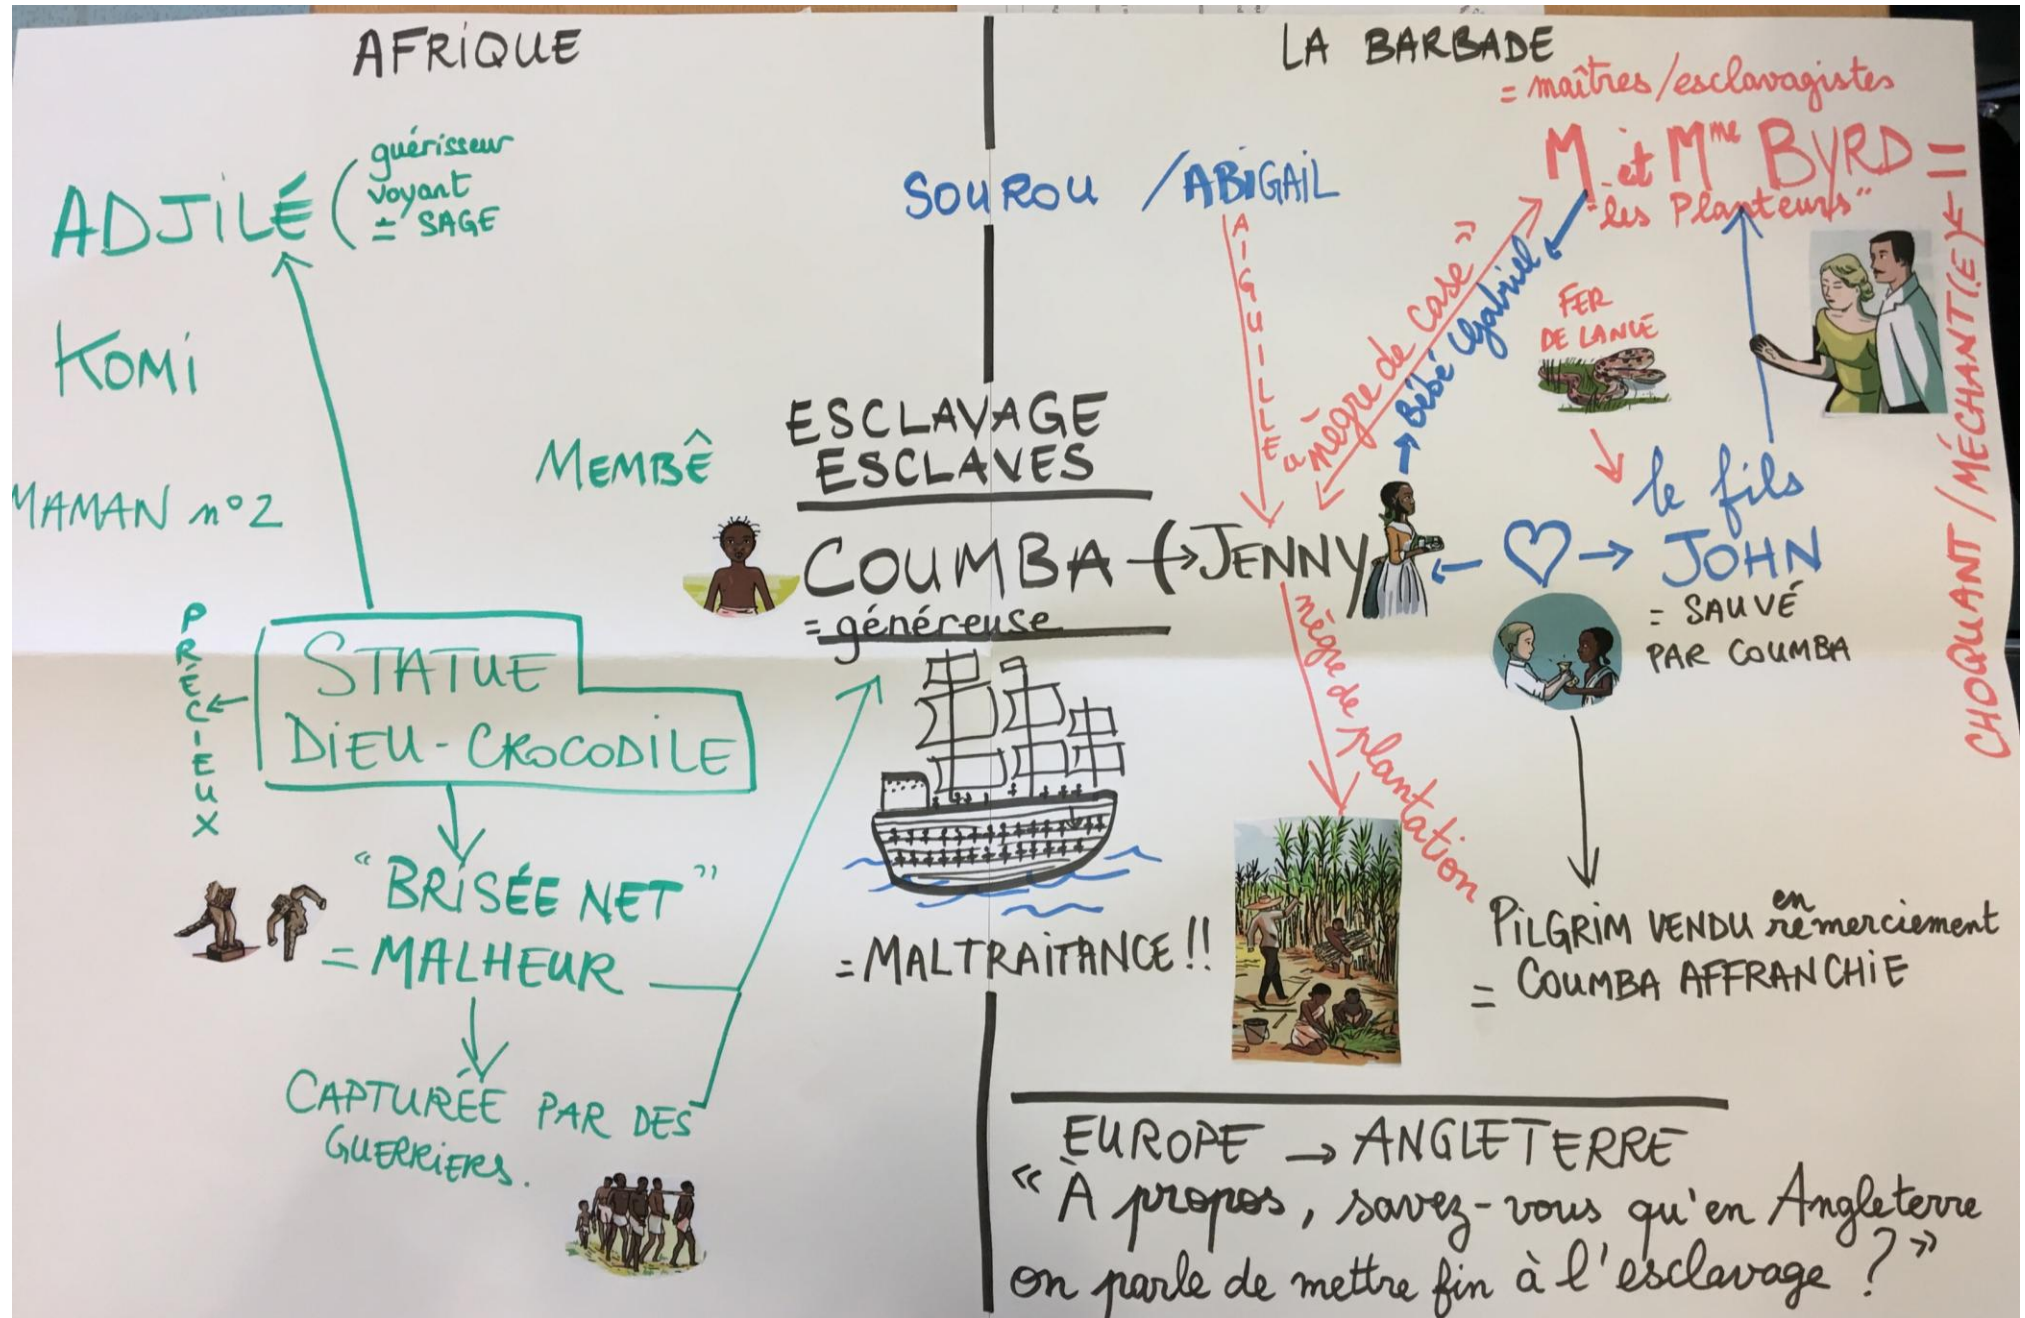 AFRIQUE
ADJILÉ
guérisseur
voyant
= SAGE
KOMI
MAMAN n°2
MEMBÊ
PRÉCIEUX
STATUE
DIEU-CROCODILE
"BRISÉE NET"
= MALHEUR
CAPTURÉE PAR DES
GUERRIERS.
ESCLAVAGE
ESCLAVES
COUMBA → JENNY
= généreuse
= MALTRAITANCE!!
LA BARBADE
= maîtres/esclavagistes
M et Mme BYRD =
"les Planteurs"
CHOQUANT/MÉCHANT(E)
SOUROU / ABIGAIL
AIGUILLE
"nègre de case"
Bébé Gabriel
FER
DE LANCE
le fils
JOHN
= SAUVÉ
PAR COUMBA
nègre de plantation
PILGRIM VENDU en remerciement
= COUMBA AFFRANCHIE
EUROPE → ANGLETERRE
« À propos, savez-vous qu'en Angleterre
on parle de mettre fin à l'esclavage ? »